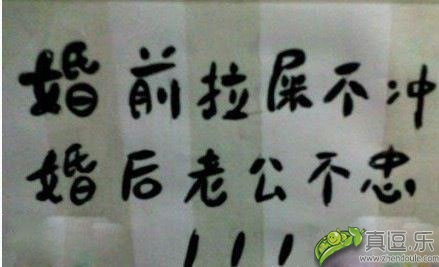 婚前拉屎不冲
婚后老公不忠
！！！
真逗.乐
www.zhendoule.com